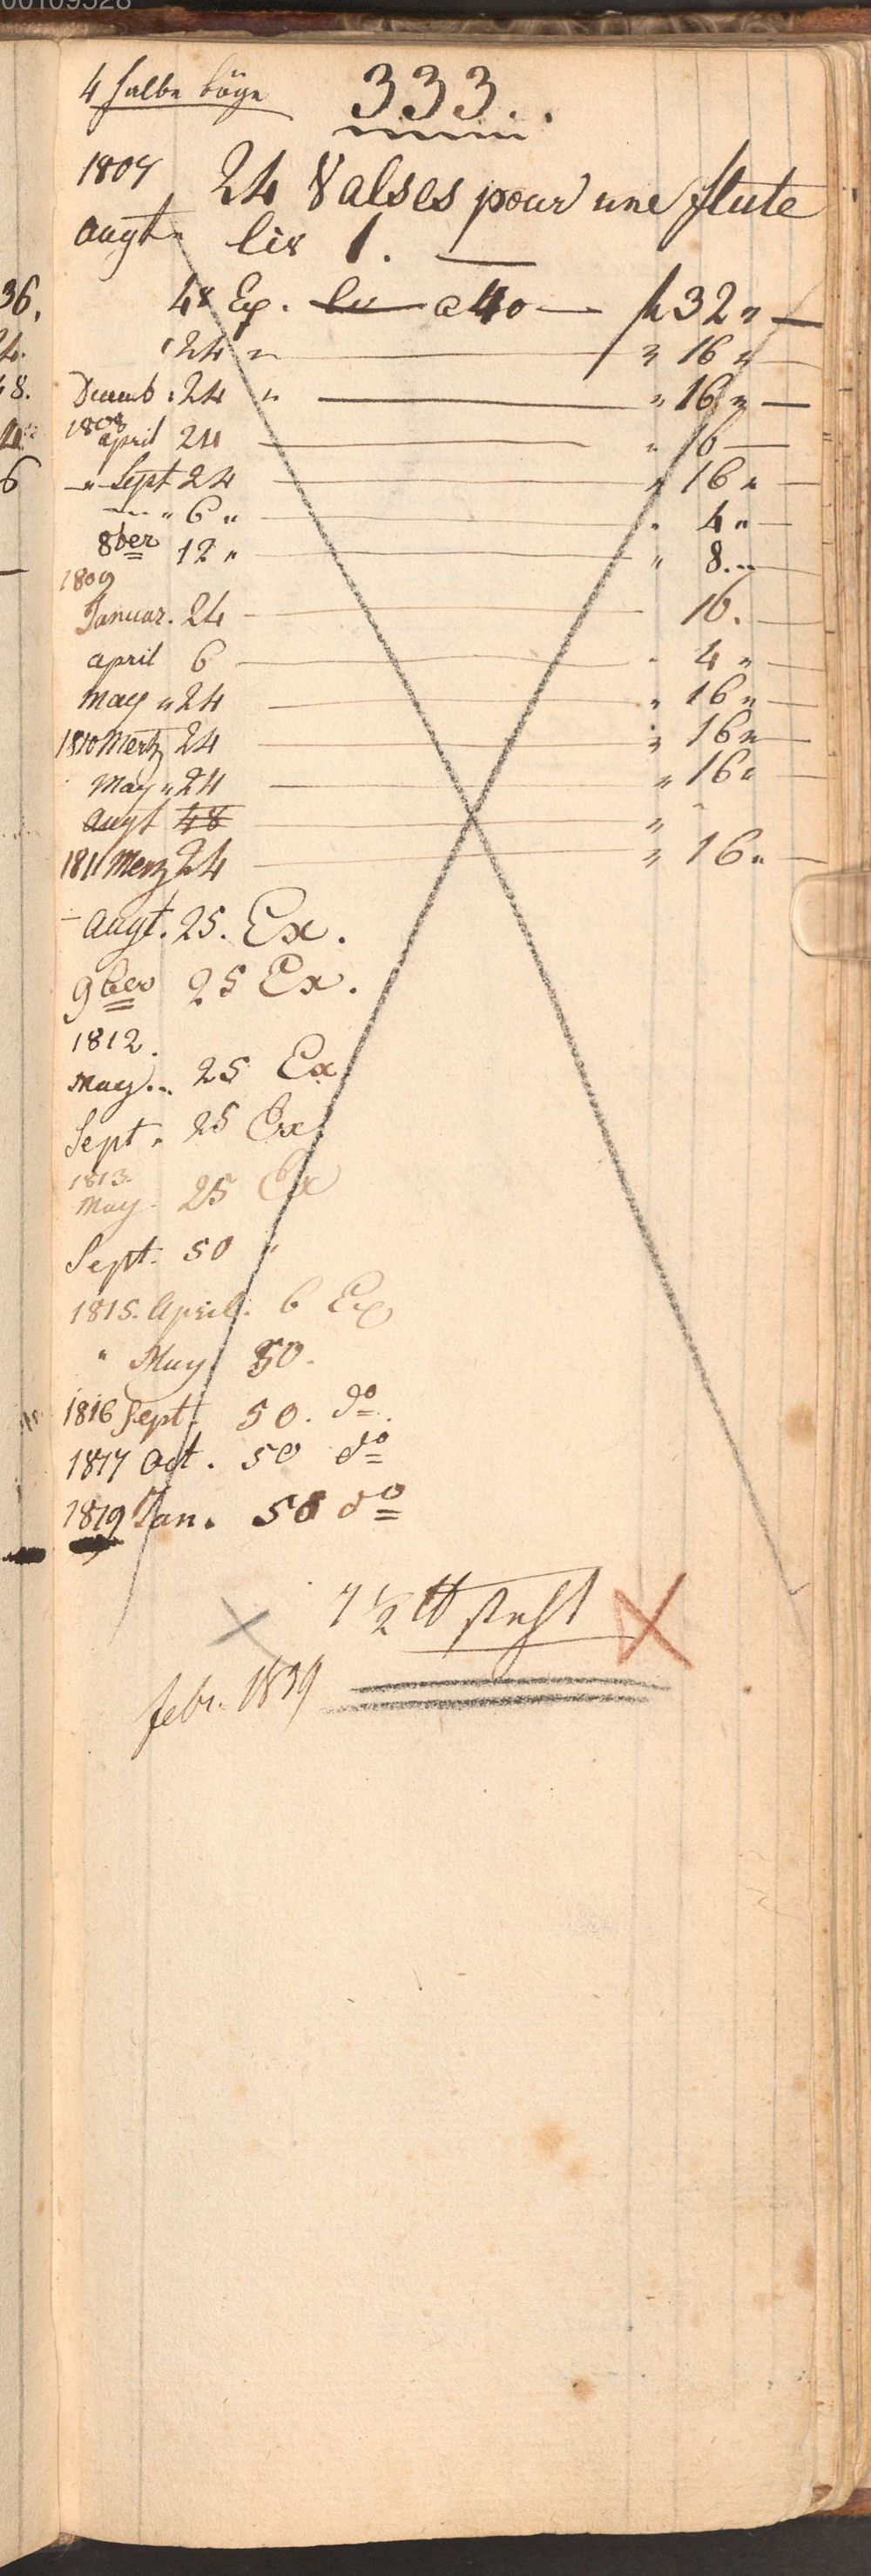 00109528
4 halbe böge 333.
1807 24 Valses pour une flute
augt. liv 1.
48 Ex. a 40 — h 32 "
24 " " 16 "
Decemb. 24 " " 16 "
1808
april 24 " 16
" Sept 24 " 16 "
" 6 " " 4 "
8ber 12 " " 8.
1809
Januar. 24 16.
april 6 " 4 "
May " 24 " 16 "
1810 Mertz 24 " 16 "
May " 24 " 16 "
augt 48 "
1811 Merz 24 " 16 "
augt. 25. Ex.
9ber 25 Ex.
1812.
May.. 25 Ex
Sept. 25 Ex
1813.
May. 25 Ex
Sept. 50 "
1815. April. 6 Ex
" May 50.
1816 Sept. 50. do.
1817 Oct. 50 do
1819 Jan. 50 do
7 1/2 ℔
febr. 1839
36.
24.
48.
6